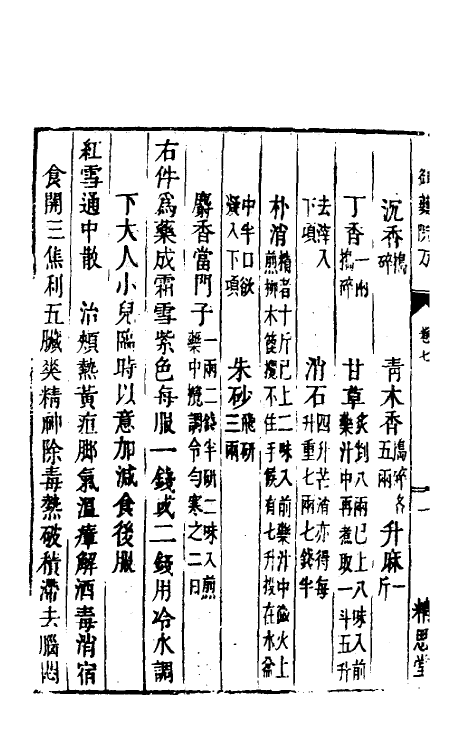 御藥院方 卷七 一 精思堂
沉香搗碎 青木香搗碎各五兩 升麻一斤
丁香一兩搗碎 甘草炙剉八兩已上八味入前藥汁中再煮取一斗五升
去滓入下項 消石四升芒消亦得每升重七兩七錢半
朴消精者十斤已上二味入前藥汁中微火上煎柳木篦攪不住手候有七升投在水盆
中半日欲凝入下項 朱砂飛研三兩
麝香當門子一兩二錢半研二味入煎藥中攪調令勻寒之二日
右件爲藥成霜雪紫色每服一錢或二錢用冷水調
下大人小兒臨時以意加減食後服
紅雪通中散 治煩熱黃疸脚氣溫瘴解酒毒消宿
食開三焦利五臟爽精神除毒熱破積滯去腦悶